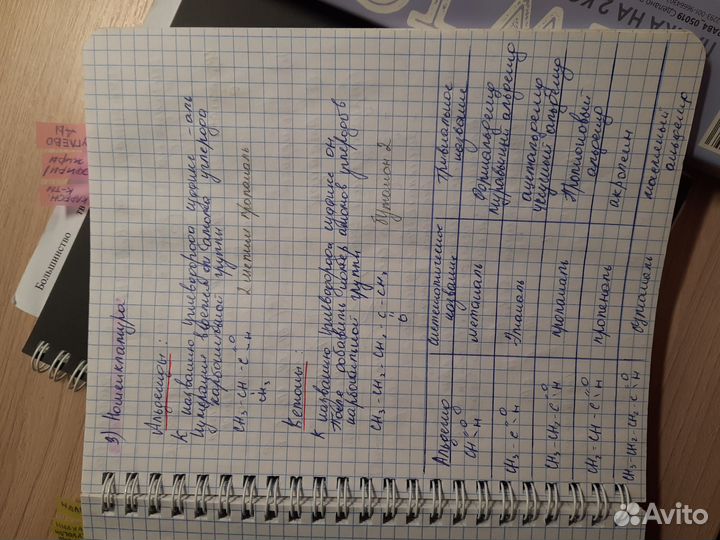 3) Номенклатура
Альдегиды:
К названию углеводорода суффикс -аль
Нумерация цепи от атома углерода
карбонильной группы
CH3-CH-C=O
H
CH3
2 метил пропаналь
Кетоны:
К названию углеводорода суффикс он,
Также добавить номер атомов углеродов
карбонильной группы
CH3-CH2-CH2-C-CH3
O
Бутанон 2
Альдегид
Систематическое
название
Тривиальное
название
CH=O
H
метаналь
Формальдегид
Муравьиный альдегид
CH3-C=O
H
Этаналь
ацетальдегид
Уксусный альдегид
CH3-CH2-C=O
H
пропаналь
Пропионовый
альдегид
CH2=CH-C=O
H
пропеналь
акролеин
CH3-CH2-CH2-C=O
H
бутаналь
масляный
альдегид
Большинство
тв
УГЛЕВО
ДЫ
жиры
эфиры/
КАРБОН
К-ТЫ
КА НА 2 КО
Avito